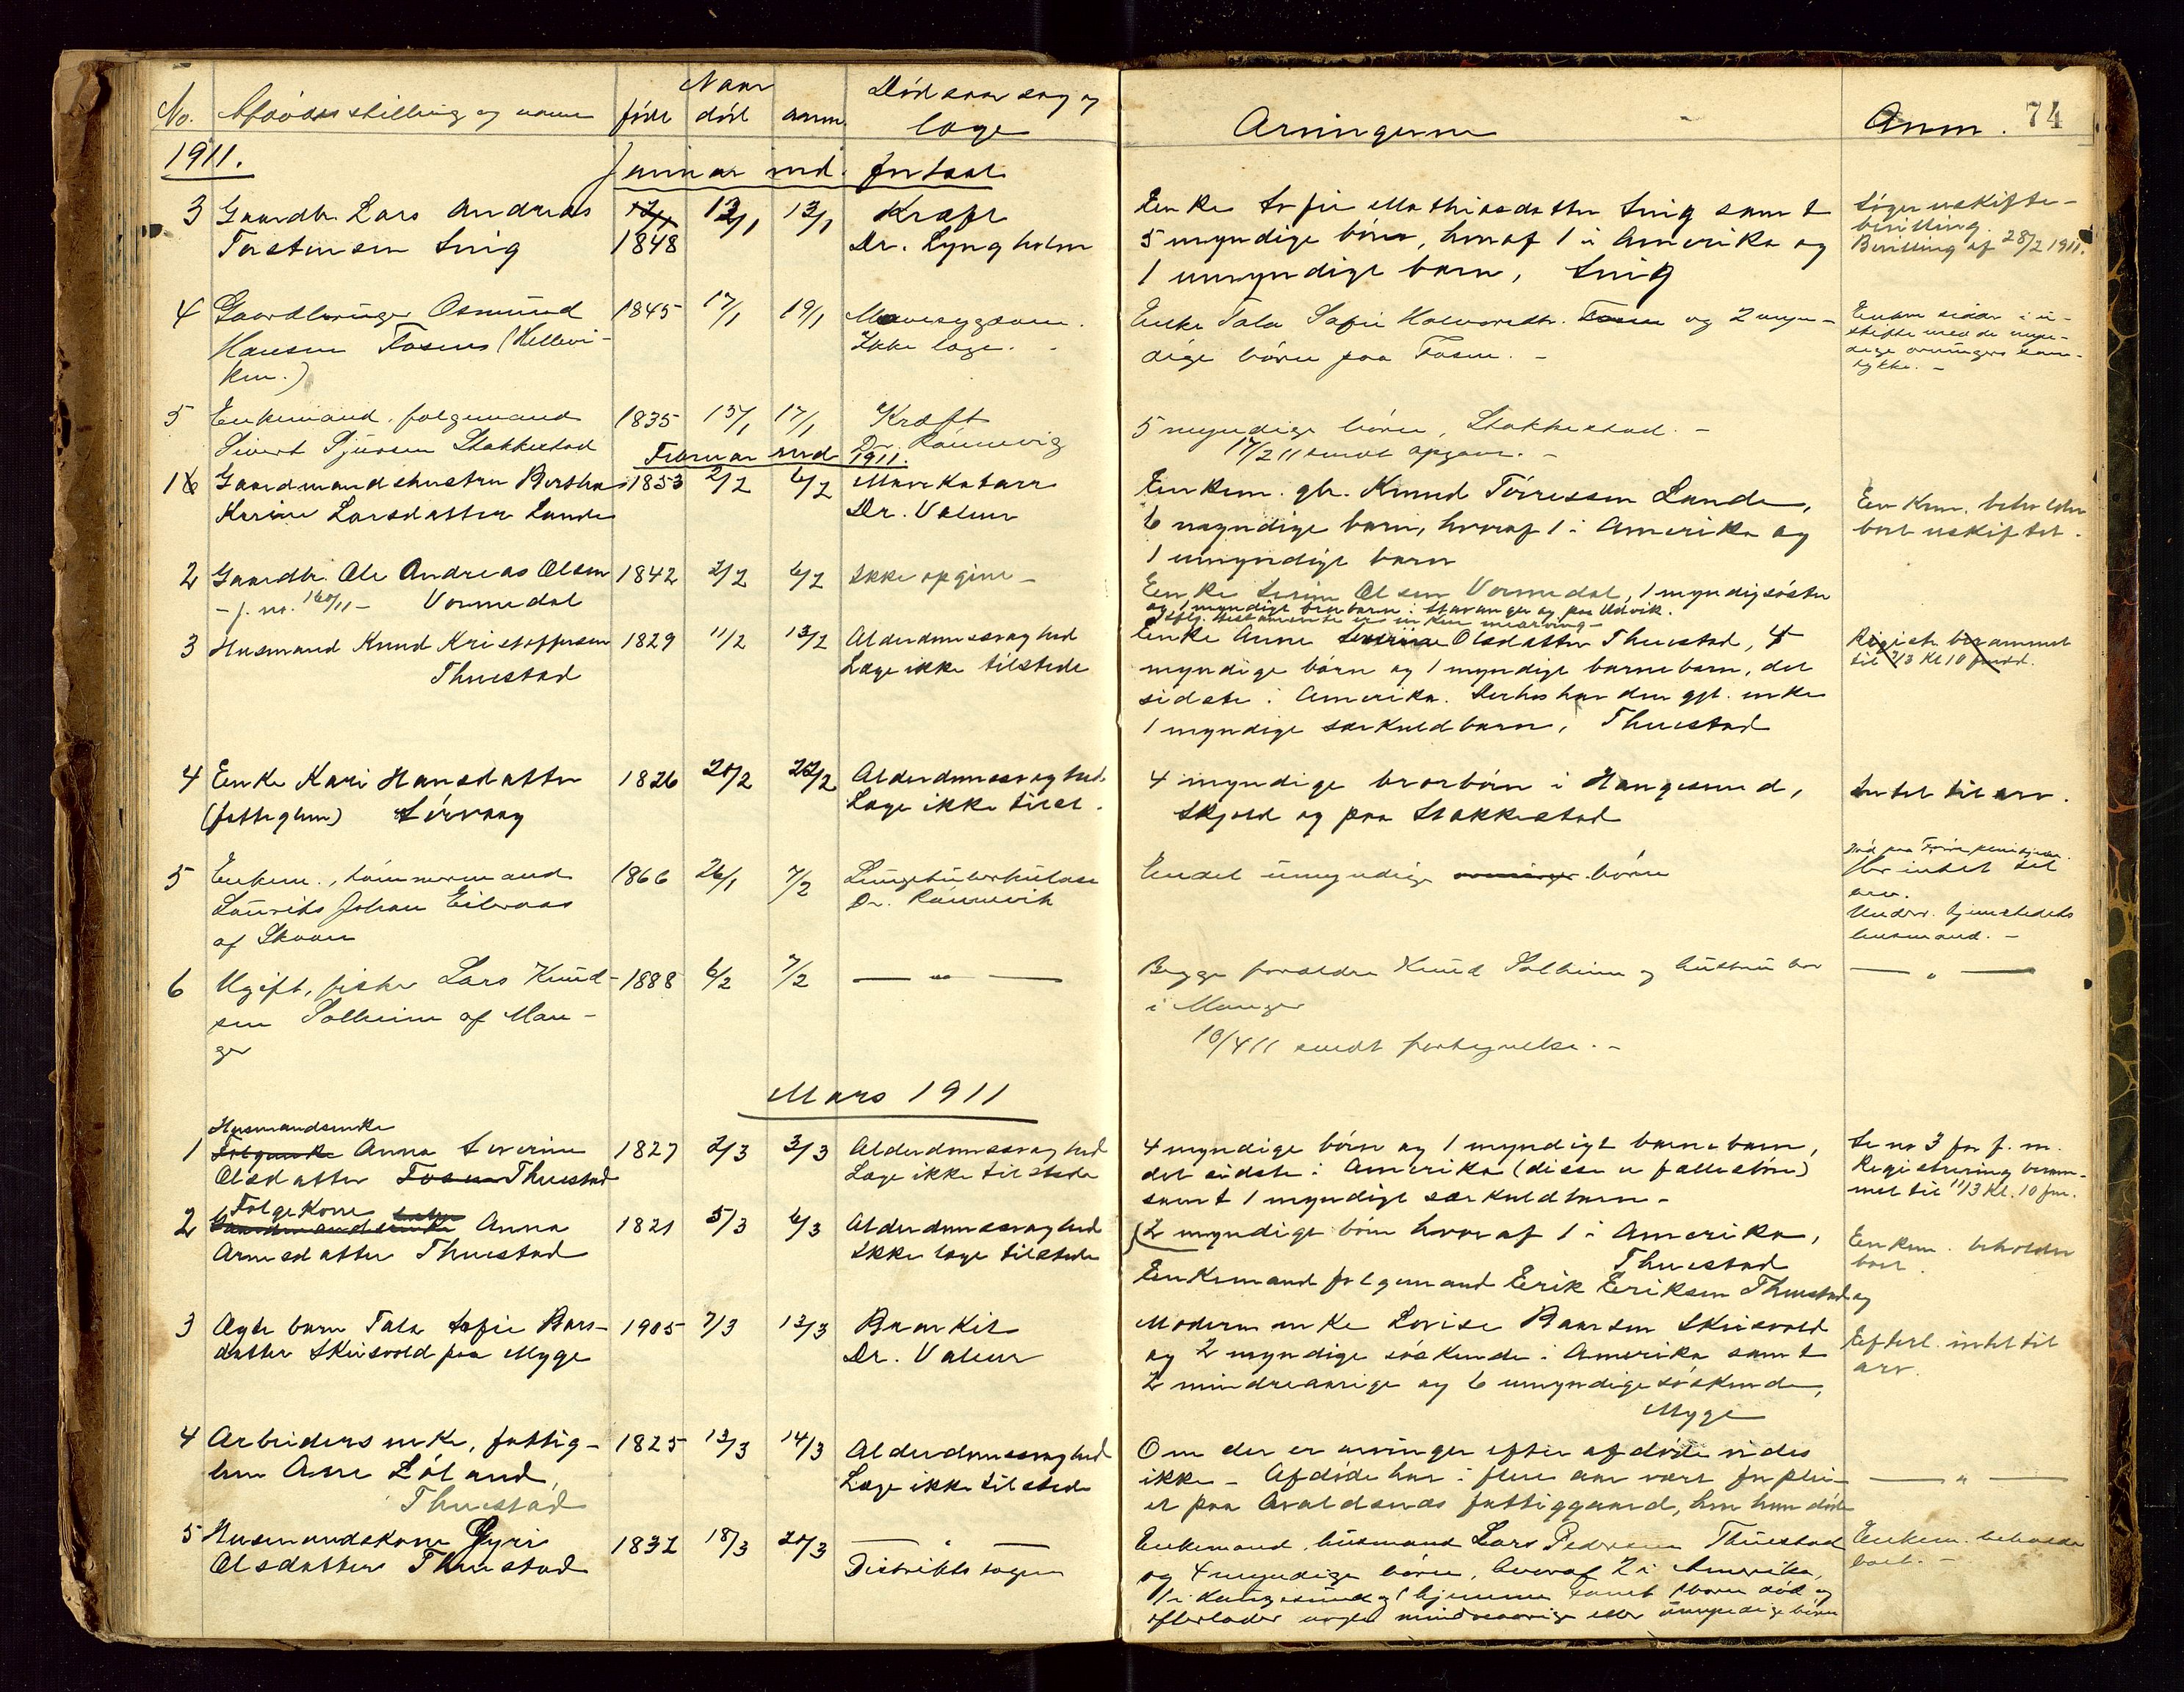 No. Afdødes stilling og navn Naar født død anm. Dødsaarsag og læge Arvingerne Anm. 74
1911. Januar md. fortsat
3 Gaardbr. Lars Andreas 12/1 13/1 Kræft Enke Sofie Mathiasdatter Snig samt Søger uskifte-
Torstensen Snig 1848 Dr. Lyngholm 5 myndige børn, hvoraf 1 i Amerika og bevilling.
1 umyndigt barn, Snig Bevilling af 28/2 1911.
4 Gaardbruger Osmund 1845 17/1 19/1 Mavesygdom. Enke Tala Sofie Halvorsdtr. Fosen og 2 myn- Enken sidder i u-
Hansen Fosen (Hellevi- Ikke læge. - dige børn paa Fosen. - skifte med de myn-
ken.) dige arvingers sam-
tykke. -
5 Enkemand, folgemand 1835 13/1 17/1 Kræft 5 myndige børn, Stakkestad. -
Sivert Sjursen Stakkestad Dr. Rønnevig 17/2 11 sendt opgave. -
Februar md 1911.
1 Gaardmandshustru Bertha 1853 2/2 6/2 Mavekatarr Enkem. gbr. Knud Tørressen Lunde, Enkem. beholder
Karine Larsdatter Lunde Dr. Valeur 6 myndige barn, hvoraf 1 i Amerika og boet uskiftet.
1 umyndigt barn
2 Gaardbr. Ole Andreas Olsen 1842 2/2 6/2 Ikke opgivet - Enke Serine Olsen Vormedal, 1 myndig søster
- j. no. 160/11 - Vormedal og 1 myndigt brorbarn i Stavanger og paa Utvik.
Ifølg. testamente er enken enearving -
3 Husmand Knud Kristoffersen 1829 11/2 13/2 Alderdomssvaghed Enke Anne Severine Olsdatter Thuestad, 4 Registr. berammet
Thuestad Læge ikke tilstede myndige børn og 1 myndigt barnebarn, det til 7/3 kl 10 formd.
sidste i Amerika. Derhos har den gjl. enke
1 myndige særkuldbarn, Thuestad
4 Enke Kari Hansdatter 1826 20/2 22/2 Alderdomssvaghed 4 myndige brorbørn i Haugesund, Intet til arv.
(fattiglem) Sørvaag Læge ikke tilst. Skjold og paa Stakkestad
5 Enkem., tømmermand 1866 26/1 7/2 Lungetuberkulose Endel umyndige arvinger børn
Laurits Johan Eileraas Dr. Rønnevik Her intet til
af Skaare arv.
Underr. hjemstedets
lensmand. -
6 Ugift, fisker Lars Knud- 1888 6/2 7/2 — " — Begge forældre Knud Solheim og hustru bor — " —
sen Solheim af Man- i Manger
ger 10/4 11 sendt fortegnelse. -
Mars 1911
Husmandsenke
1 Folgeenke Anna Severine 1827 2/3 3/3 Alderdomssvaghed 4 myndige børn og 1 myndigt barnebarn, Se no 3 for f. m.
Olsdatter Fosen Thuestad Læge ikke tilstede det sidste i Amerika (disse er fællesbørn) Registrering beram-
samt 1 myndigt særkuldbarn - met til 11/3 kl. 10 fm.
2 Folgekone Anna 1821 5/3 6/3 Alderdomssvaghed (2 myndige børn hvoraf 1 i Amerika, Enkem. beholder
Arnesdatter Thuestad Ikke læge tilstede Thuestad boet.
Enkemand folgemand Erik Eriksen Thuestad og
3 Ægte barn Tala Sofie Bars- 1905 7/3 13/3 Bronkit Moderen enke Lovise Baardsen Skeisvold Efterl. intet til
datter Skeisvold paa Myge Dr. Valeur og 2 myndige søskende i Amerika samt arv.
2 mindreaarige og 6 umyndige søskende,
Myge
4 Arbeiders enke, fattig- 1825 13/3 14/3 Alderdomssvaghed Om der er arvinger efter afdøde vides — " —
lem Ane Løland, Læge ikke tilstede ikke - Afdøde har i flere aar vært forplei-
Thuestad et paa Avaldsnæs fattiggaard, hvor hun døde
5 Husmandskone Gyri 1832 18/3 20/3 — " — Enkemand, husmand Lars Pedersen Thuestad Enkem. beholder
Olsdatter Thuestad Distriktslægen og 4 myndige børn, hvoraf 2 i Amerika, boet. -
1 i Haugesund og 1 hjemme samt 1 barn død og
efterlader nogle mindreaarige eller umyndige børn